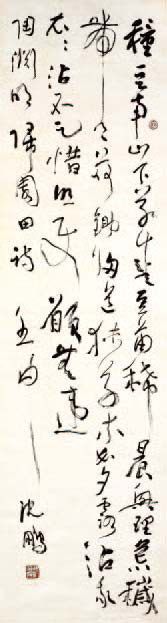 種豆南山下草盛豆苗稀晨興理荒穢
帶月荷鋤歸道狹草木長夕露沾我
衣衣沾不足惜但使願無違
陶淵明歸園田詩
沈鵬